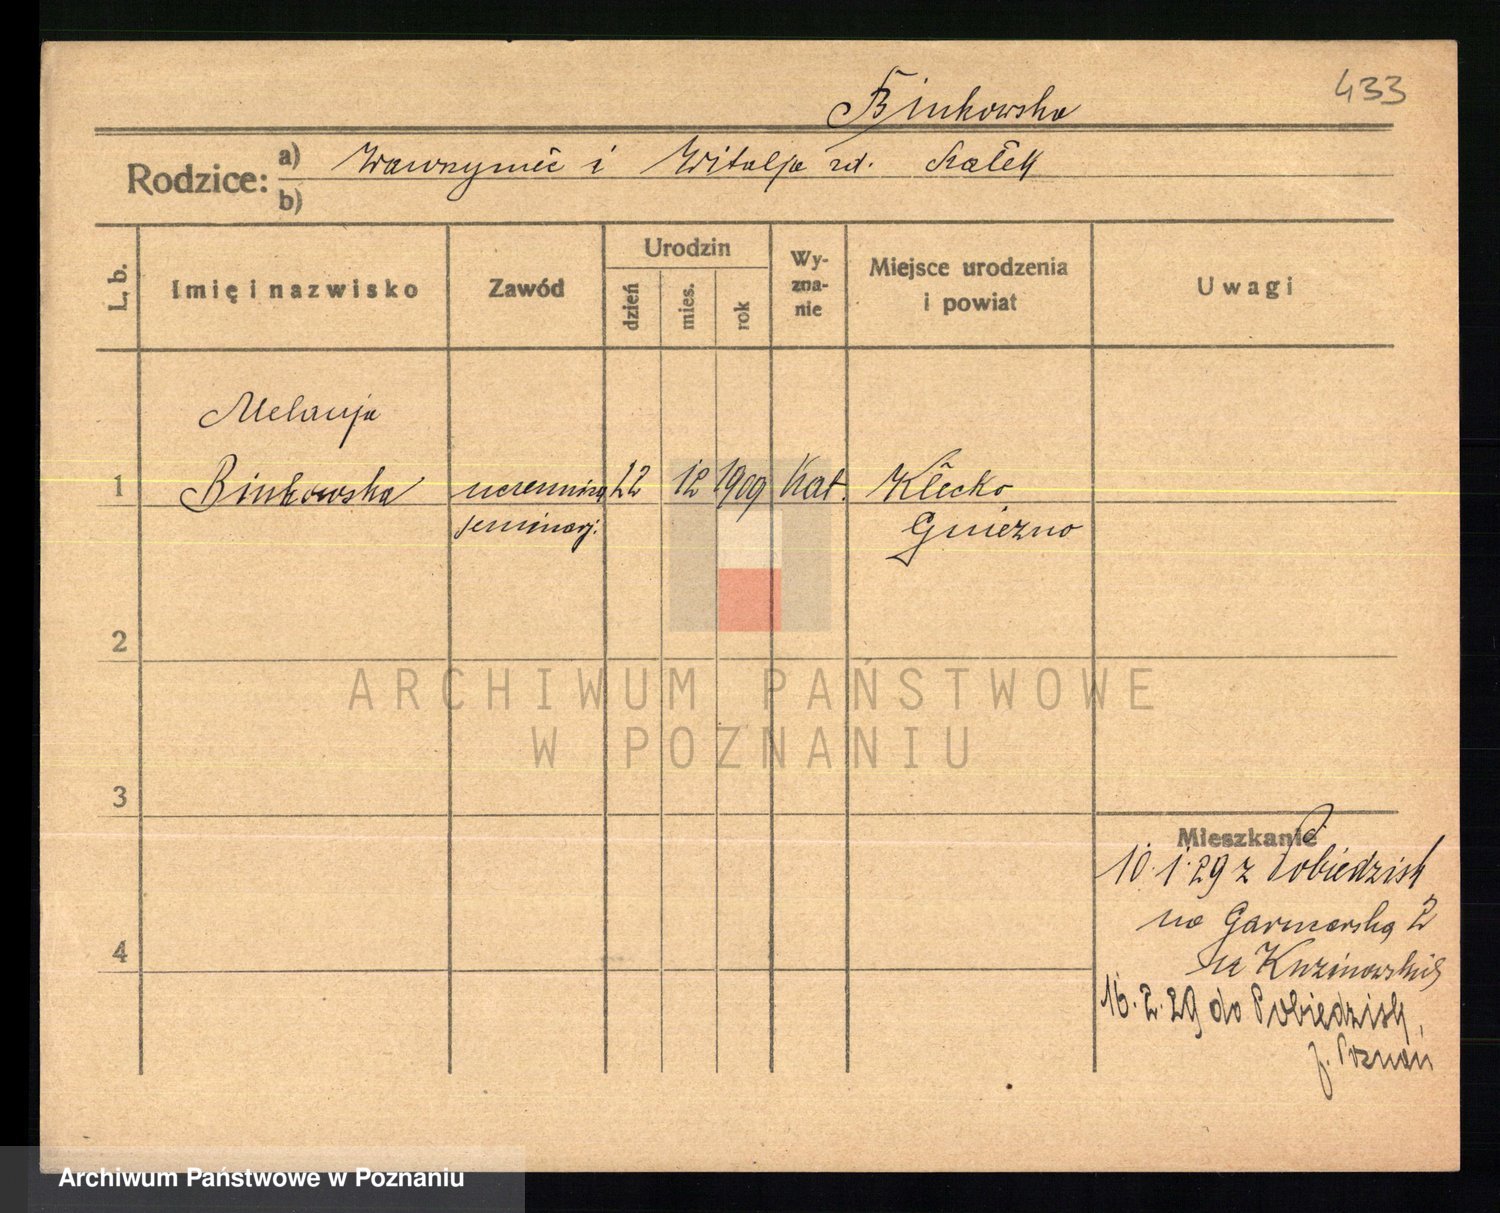 433
Binkowska
Rodzice: a) Wawrzyniec i Witalja zd.
b)
L. b.
Imię i nazwisko
Zawód
Urodzin
dzień
mies.
rok
Wy-
zna-
nie
Miejsce urodzenia
i powiat
Uwagi
Melanja
1 Binkowska uczennica 22 12 1909 Kat. Kłecko
seminarj. Gniezno
2
ARCHIWUM PAŃSTWOWE
W POZNANIU
3
Mieszkanie
10.1.29 z Pobiedzisk
na Garncarską 2
4
16.2.29 do Pobiedzisk,
p. Poznań
Archiwum Państwowe w Poznaniu